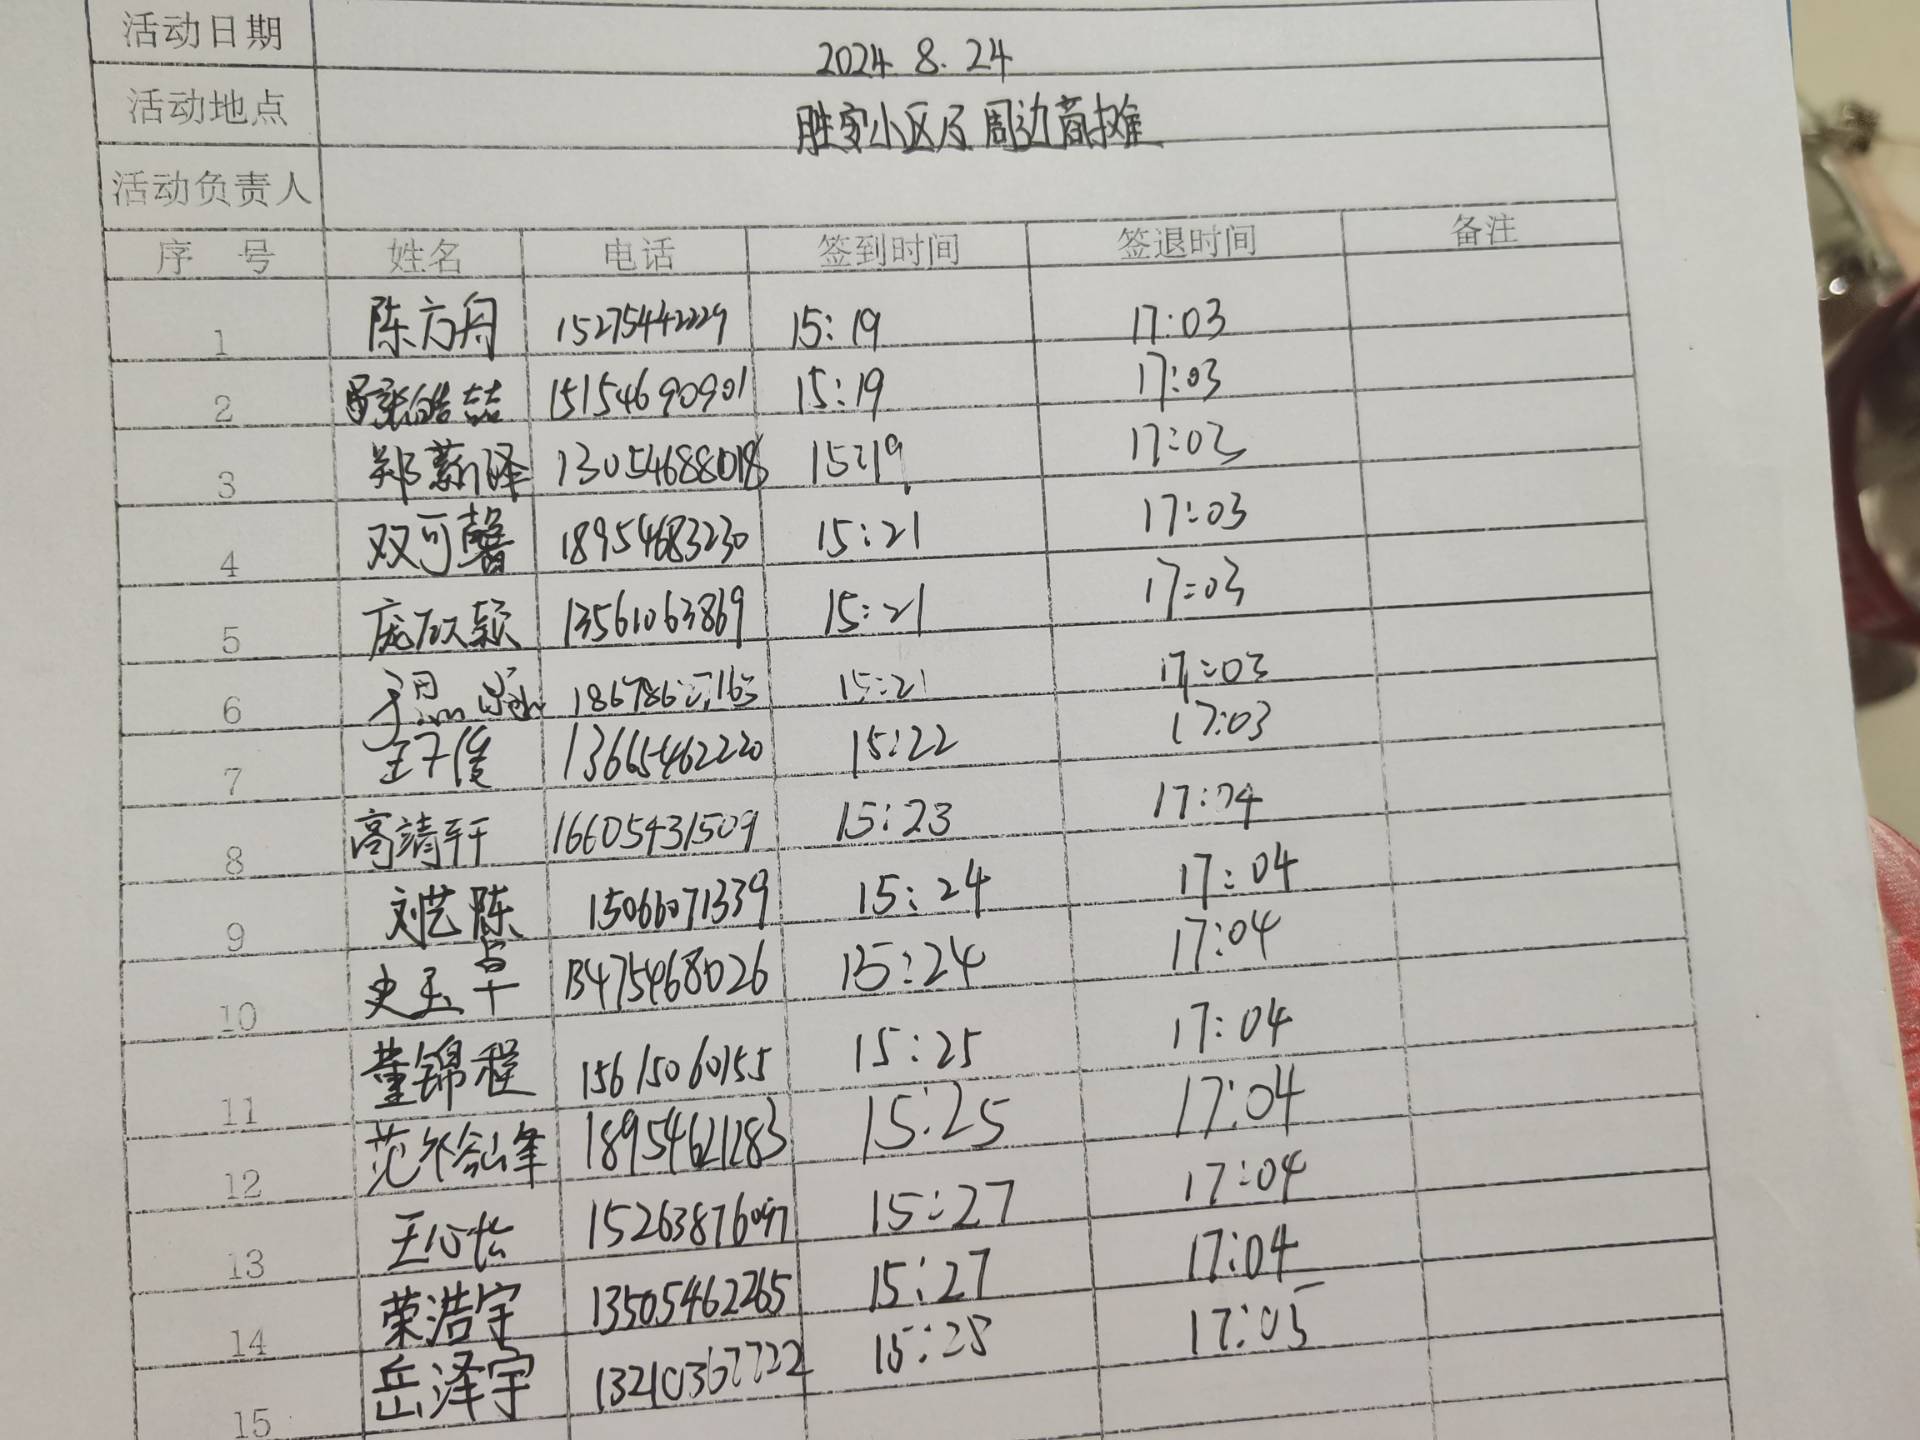 活动日期 2024.8.24
活动地点 胜安小区及周边商摊
活动负责人
序 号 姓名 电话 签到时间 签退时间 备注
1 陈方舟 15275442229 15:19 17:03
2 15154690901 15:19 17:03
3 13054688018 15:19 17:03
4 双可馨 18954683230 15:21 17:03
5 13561063869 15:21 17:03
6 15:21 17:03
7 13665462220 15:22 17:03
8 高靖轩 16605431509 15:23 17:04
9 刘艺陈 15066071339 15:24 17:04
10 史玉卓 13475468026 15:24 17:04
11 董锦程 15615060155 15:25 17:04
12 18954621283 15:25 17:04
13 王心怡 15263876097 15:27 17:04
14 荣浩宇 13505462265 15:27 17:04
15 岳泽宇 13210367722 15:28 17:05